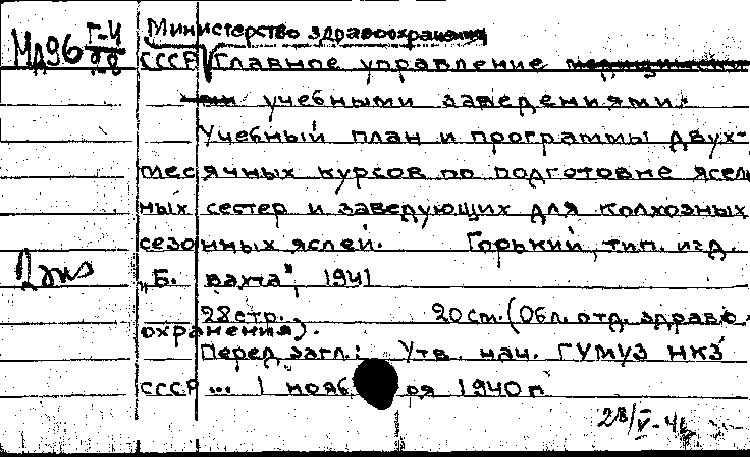 Министерство здравоохранения
Мд96 Г-4
СССР Главное управление
учебными заведениями.
Учебный план и программы двух-
месячных курсов по подготовке ясель
ных сестер и заведующих для колхозных
сезонных яслей. Горький, тип. изд.
2 экз
„Б. вахта", 1941
28 стр. 20 см. (Обл. отд. здраво-
охранения).
Перед загл.: Утв. нач. ГУМУЗ НКЗ
СССР ... 1 ноября 1940 г
28/V-41